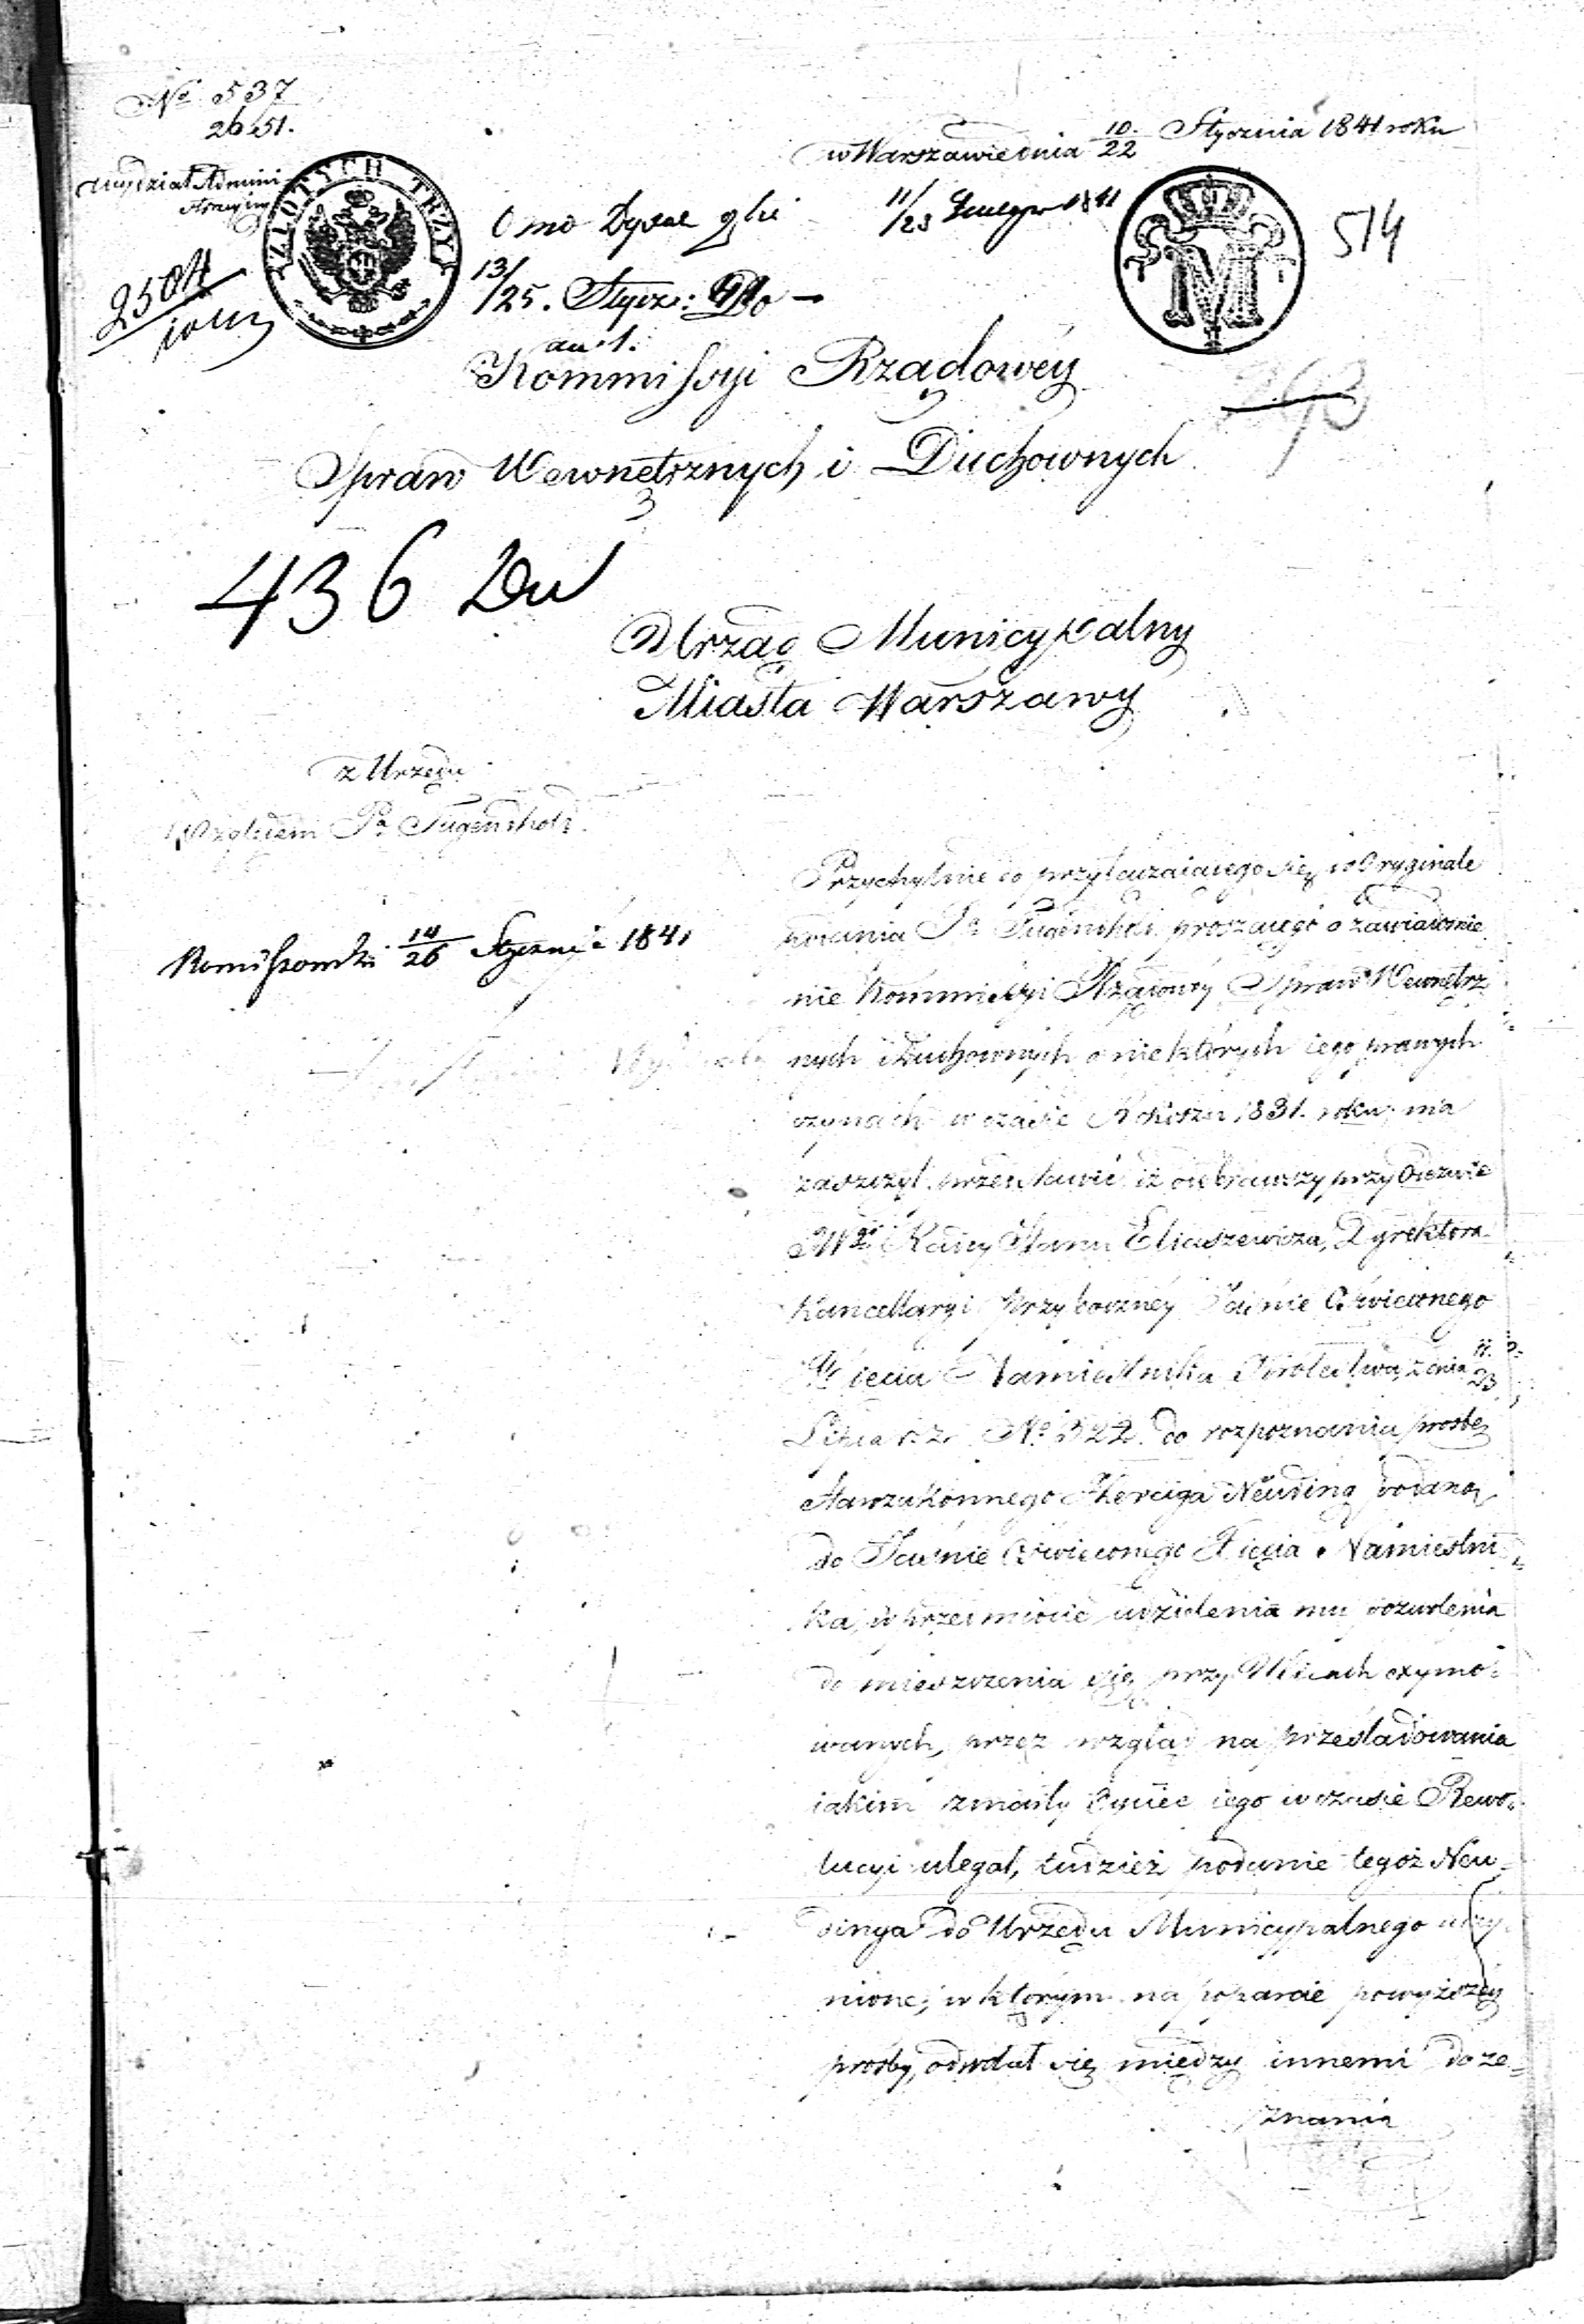 No 537
2651.
Wydział Admini-
stracyiny
w Warszawie dnia 10/22 Stycznia 1841 roku
ZŁOTYCH TRZY
11/23 1841
M
514
2504
13/25. Stycz:
an 1.
Kommissyi Rządowéy
Spraw Wewnętrznych i Duchownych
293
436 Dw
Urząd Municypalny
Miasta Warszawy
z Urzędu
Względem Pa Tugendhold.
14/26 Stycznia 1841
Przychylnie do przyłączaiącego się w Oryginale
podania Pa Tugendhold proszącego o zawiadomie
nie Kommissyi Rządowéy Spraw Wewnętrz
nych i Duchownych o niektórych iego prawych
czynach w czasie Rokoszu 1831. roku, ma
zaszczyt przedstawić iż odebrawszy przy Odezwie
JWgo Radcy Stanu Eliaszewicza, Dyrektora
Kancellaryi Przybocznéy Jaśnie Oświeconego
Xięcia Namiestnika Królestwa, z dnia 11/23
Lipca r. z. No 322. do rozpoznania prośbę
Starozakonnego Herciga Neuding podaną
do Jaśnie Oświeconego Xięcia Namiestni
ka, w przedmiocie udzielenia mu pozwolenia
do mieszczenia się przy Ulicach exymo-
wanych, przez wzgląd na prześladowania
iakim zmarły Oyciec iego w czasie Rewo-
lucyi ulegał, tudzież podanie tegoż Neu-
dinga do Urzędu Municypalnego uczy-
nione, w którym na poparcie powyższéy
prośby, odwołał się między innemi do ze-
znania